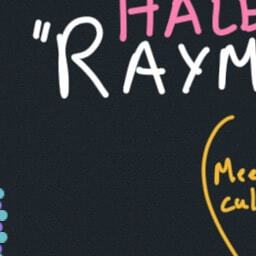 HALE
"RAYM
Mee
cul